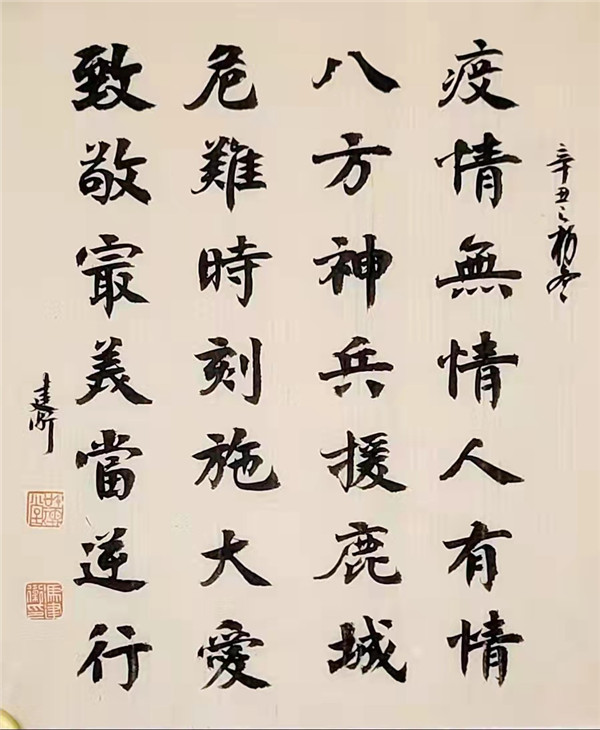 辛丑之初冬
疫情無情人有情
八方神兵援鹿城
危難時刻施大愛
致敬最美當逆行
建衛